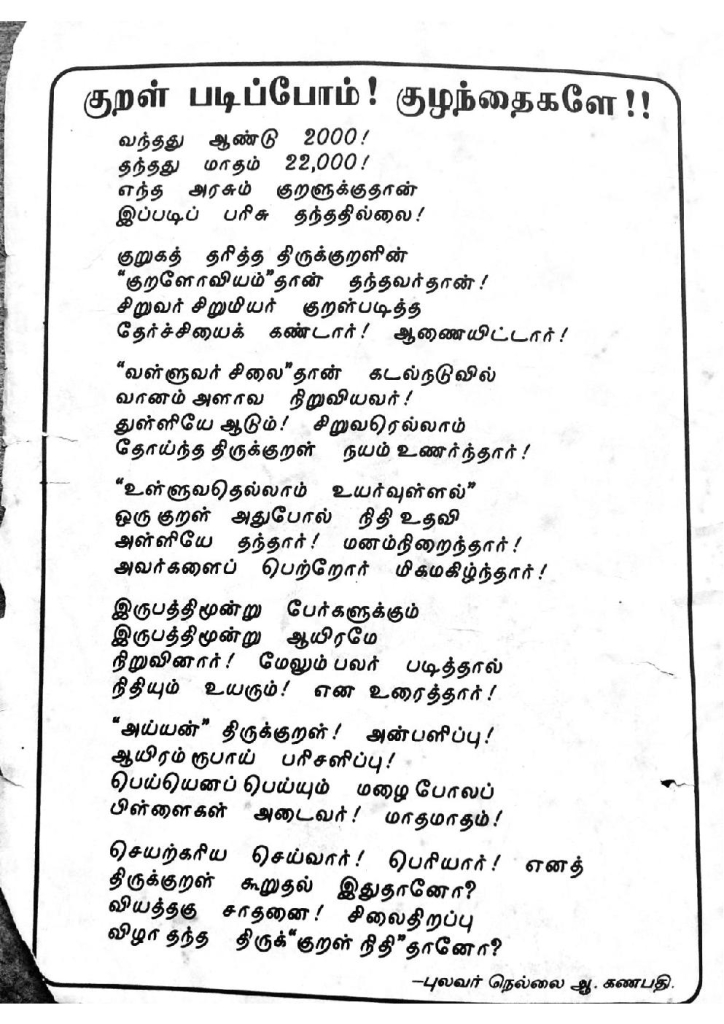 குறள் படிப்போம்! குழந்தைகளே!!
வந்தது ஆண்டு 2000!
தந்தது மாதம் 22,000!
எந்த அரசும் குறளுக்குதான்
இப்படிப் பரிசு தந்ததில்லை!
குறுகத் தரித்த திருக்குறளின்
“குறளோவியம்”தான் தந்தவர்தான்!
சிறுவர் சிறுமியர் குறள்படித்த
தேர்ச்சியைக் கண்டார்! ஆணையிட்டார்!
“வள்ளுவர் சிலை”தான் கடல்நடுவில்
வானம் அளாவ நிறுவியவர்!
துள்ளியே ஆடும்! சிறுவரெல்லாம்
தோய்ந்த திருக்குறள் நயம் உணர்ந்தார்!
“உள்ளுவதெல்லாம் உயர்வுள்ளல்”
ஒரு குறள் அதுபோல் நிதி உதவி
அள்ளியே தந்தார்! மனம்நிறைந்தார்!
அவர்களைப் பெற்றோர் மிகமகிழ்ந்தார்!
இருபத்திமூன்று பேர்களுக்கும்
இருபத்திமூன்று ஆயிரமே
நிறுவினார்! மேலும் பலர் படித்தால்
நிதியும் உயரும்! என உரைத்தார்!
“அய்யன்” திருக்குறள்! அன்பளிப்பு!
ஆயிரம் ரூபாய் பரிசளிப்பு!
பெய்யெனப் பெய்யும் மழை போலப்
பிள்ளைகள் அடைவர்! மாதமாதம்!
செயற்கரிய செய்வார்! பெரியார்! எனத்
திருக்குறள் கூறுதல் இதுதானோ?
வியத்தகு சாதனை! சிலைதிறப்பு
விழா தந்த திருக்“குறள் நிதி”தானோ?
–புலவர் நெல்லை ஆ. கணபதி.